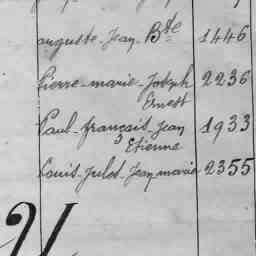 auguste-Jean-Bte 1446
Pierre-marie-Joseph 2236
Ernest
Paul-français-Jean 1933
Etienne
Louis-Jules-Jean marie 2355